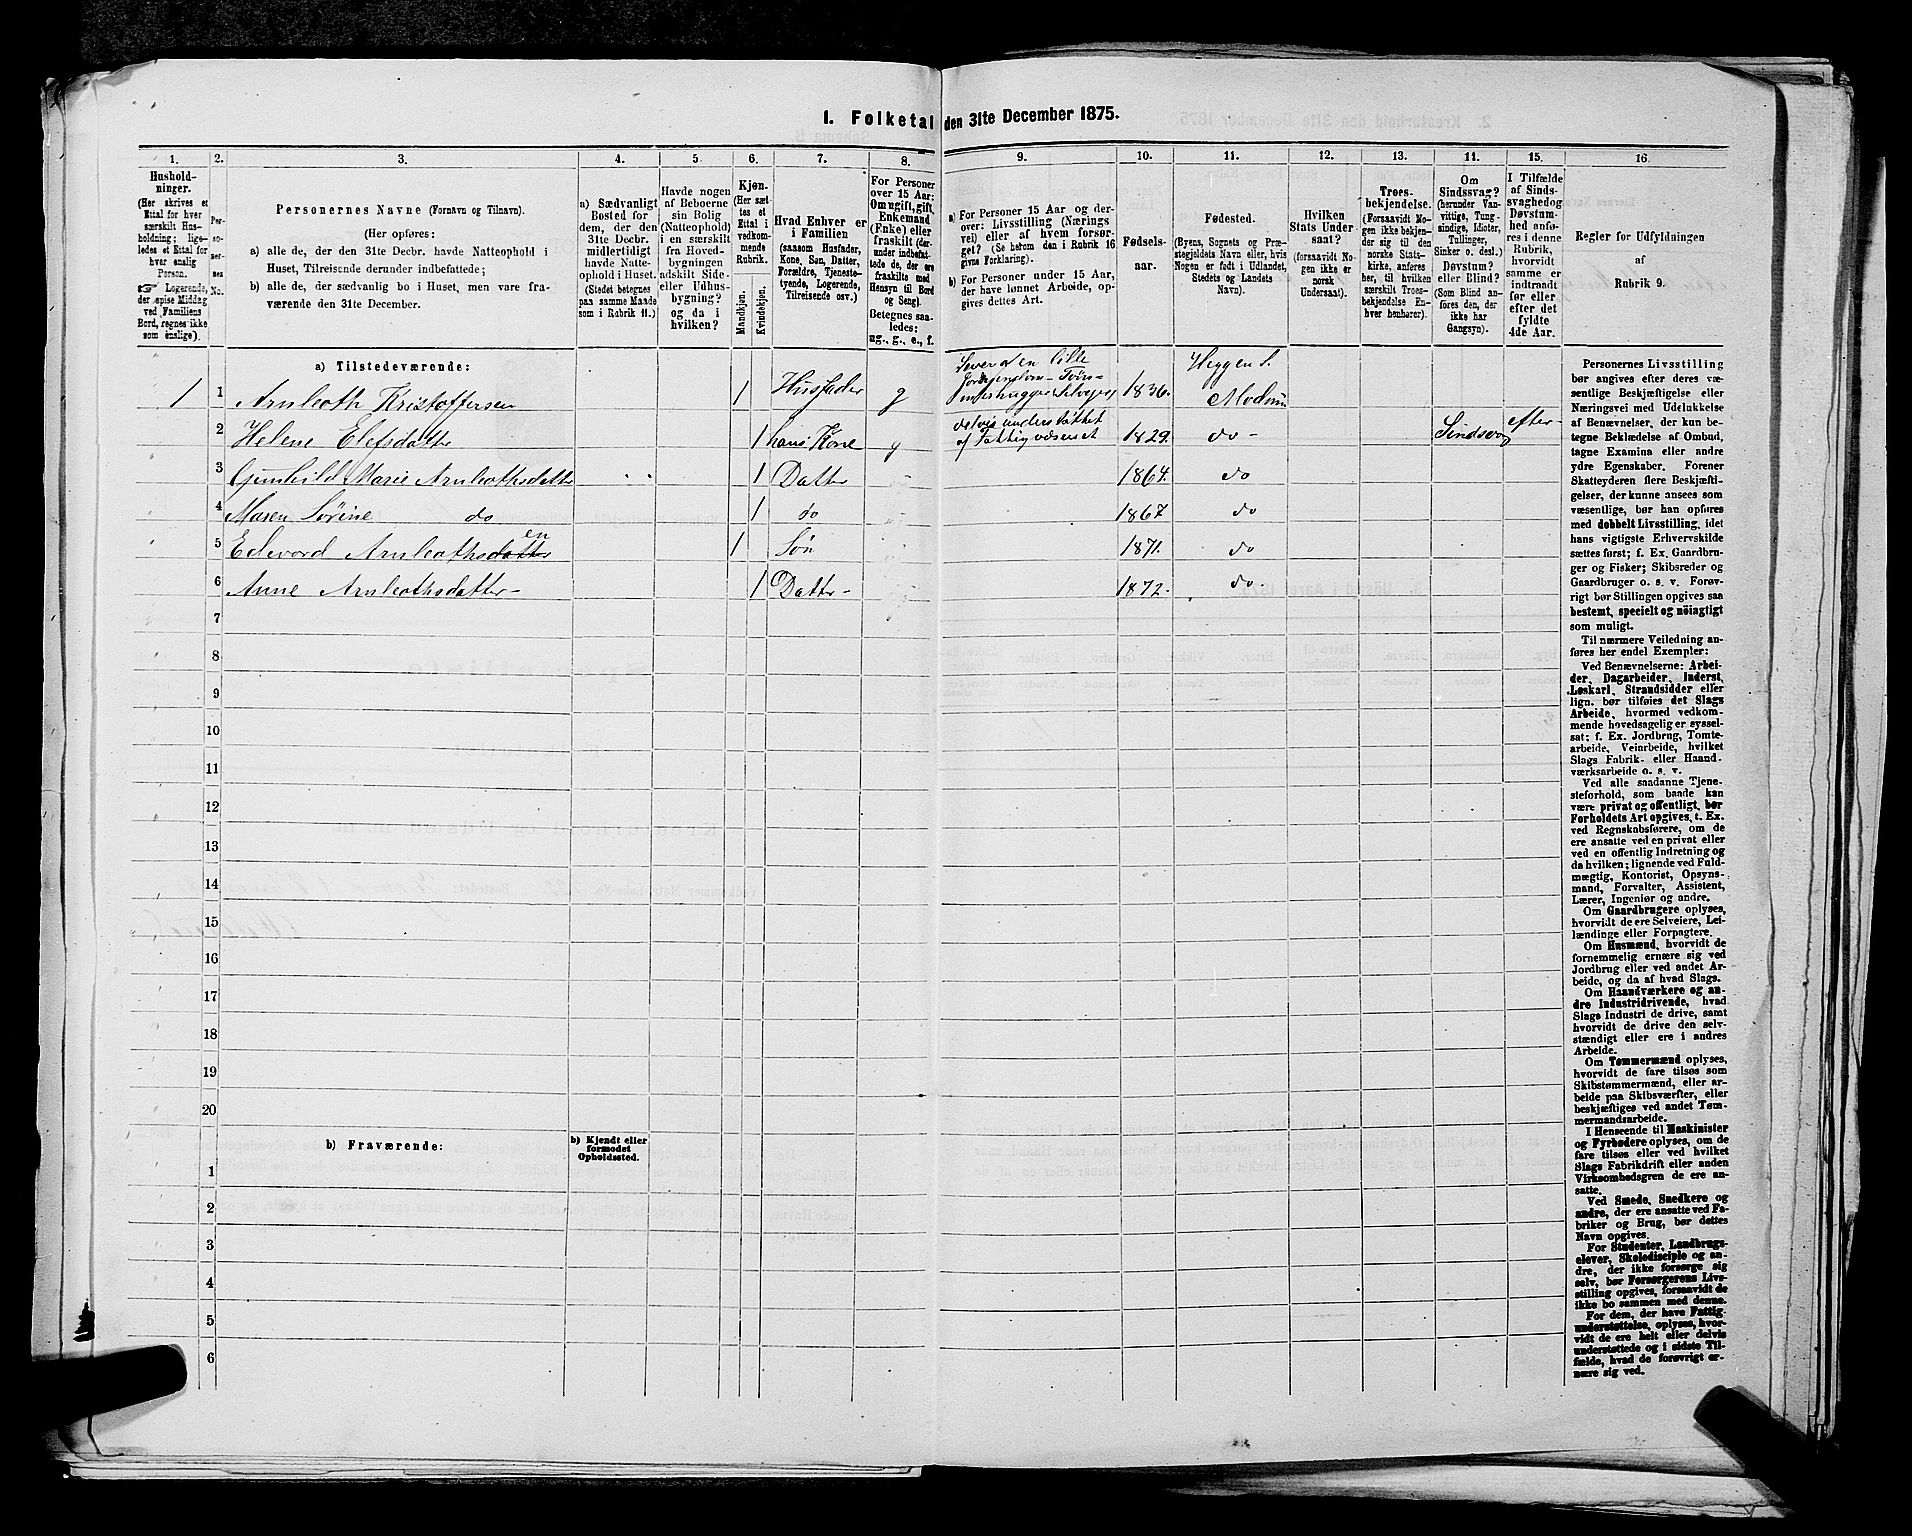 1. Folketal den 31te December 1875.
1. 2. 3. 4. 5. 6. 7. 8. 9. 10. 11. 12. 13. 11. 15. 16.
Hushold-
ninger.
(Her skrives et
Ettal for hver
særskilt Hus-
holdning; lige-
ledes et Ettal for
hver enslig
Person.
☞ Logerende,
der spise Middag
ved Familiens
Bord, regnes ikke
som enslige).
Per-
so-
ner-
nes
No.
Personernes Navne (Fornavn og Tilnavn).
(Her opføres:
a) alle de, der den 31te Decbr. havde Natteophold i
Huset, Tilreisende derunder indbefattede;
b) alle de, der sædvanlig bo i Huset, men vare fra-
værende den 31te December.
a) Sædvanligt
Bosted for
dem, der den
31te Decbr.
midlertidigt
havde Natte-
ophold i Huset.
(Stedet betegnes
paa samme Maade
som i Rubrik 11.)
Havde nogen
af Beboerne
sin Bolig
(Natteophold)
i en særskilt
fra Hoved-
bygningen
adskilt Side-
eller Udhus-
bygning?
og da i
hvilken?
Kjøn.
(Her sæt-
tes et
Ettal i
vedkom-
mende
Rubrik.
Mandkjøn.
Kvindekjøn.
Hvad Enhver er
i Familien
(saasom Husfader,
Kone, Søn, Datter,
Forældre, Tjeneste-
tyende, Logerende,
Tilreisende osv.)
For Personer
over 15 Aar:
Om ugift, gift,
Enkemand
(Enke) eller
fraskilt (der-
under indbefat-
tede de, der ere
fraskilte med
Hensyn til Bord
og Seng).
Betegnes saa-
ledes:
ug., g., e., f.
a) For Personer 15 Aar og der-
over: Livsstilling (Nærings
vei) eller af hvem forsør-
get? (Se herom den i Rubrik 16
givne Forklaring).
b) For Personer under 15 Aar,
der have lønnet Arbeide, op-
gives dettes Art.
Fødsels-
aar.
Fødested.
(Byens, Sognets og Præ-
stegjeldets Navn eller, hvis
Nogen er født i Udlandet,
Stedets og Landets
Navn).
Hvilken
Stats Under
saat?
(forsaavidt No-
gen ikke er
norsk
Undersaat).
Troes-
bekjendelse.
(Forsaavidt No-
gen ikke bekjen-
der sig til den
norske Stats-
kirke, anføres
her, til hvilken
særskilt Troes-
bekjendelse En-
hver henhører).
Om
Sindssvag?
(herunder Van-
vittige, Tung-
sindige, Idioter,
Tullinger,
Sinker o. desl.)
Døvstum?
eller Blind?
(Som Blind an-
føres den, der
ikke har
Gangsyn).
I Tilfælde
af Sinds-
svaghed og
Døvstum-
hed anfø-
res i denne
Rubrik,
hvorvidt
samme er
indtraadt
før eller
efter det
fyldte
4de Aar.
Regler for Udfyldningen
af
Rubrik 9.
a) Tilstedeværende:
1 1 Arnleoth Kristoffersen 1 Husfader g Lever af en lille 1836. Heggen S.
Modum
2 Helene Elefsdatter 1 hans Kone g delvis understøttet af Fattigvæsenet 1829. do - Sindssvag efter
3 Gunhild Marie Arnleothsdatter 1 Datter - 1864. do
4 Maren Sørine do 1 do 1867 do
5 Edevard Arnleothsdatter en 1 Søn 1871. do
6 Anne Arnleothsdatter - 1 Datter - 1872. do.
7
8
9
10
11
12
13
14
15
16
17
18
19
20
b) Fraværende:
b) Kjendt eller
formodet
Opholdssted.
1
2
3
4
5
6
Personernes Livsstilling
bør angives efter deres væ-
sentlige Beskjæftigelse eller
Næringsvei med Udelukkelse
af Benævnelser, der kun be-
tegne Beklædelse af Ombud,
tagne Examina eller andre
ydre Egenskaber. Forener
Skatteyderen flere Beskjæfti-
gelser, der kunne ansees som
væsentlige, bør han opføres
med dobbelt Livsstilling, idet
hans vigtigste Erhvervskilde
sættes først; f. Ex. Gaardbru-
ger og Fisker; Skibsreder og
Gaardbruger o. s. v. Forøv-
rigt bør Stillingen opgives saa
bestemt, specielt og nöiagtigt
som muligt.
Til nærmere Veiledning an-
føres her endel Exempler:
Ved Benævnelserne: Arbei-
der, Dagarbeider, Inderst,
Løskarl, Strandsidder eller
lign. bør tilføies det Slags
Arbeide, hvormed vedkom-
mende hovedsagelig er syssel-
sat; f. Ex. Jordbrug, Tomte-
arbeide, Veiarbeide, hvilket
Slags Fabrik- eller Haand-
værksarbeide o. s. v.
Ved alle saadanne Tjene-
steforhold, som baade kan
være privat og offentligt, bør
Forholdets Art opgives, t. Ex.
ved Regnskabsførere, om de
ere ansatte ved en privat eller
ved en offentlig Indretning og
da hvilken; lignende ved Fuld-
mægtig, Kontorist, Opsyns-
mand, Forvalter, Assistent,
Lærer, Ingeniør og andre.
Om Gaardbrugere oplyses,
hvorvidt de ere Selveiere, Lei-
lændinge eller Forpagtere.
Om Husmænd, hvorvidt de
fornemmelig ernære sig ved
Jordbrug eller ved andet Ar-
beide, og da af hvad Slags.
Om Haandværkere og an-
dre Industridrivende, hvad
Slags Industri de drive, samt
hvorvidt de drive den selv-
stændigt eller ere i andres
Arbeide.
Om Tømmermænd oplyses,
hvorvidt de fare tilsøs som
Skibstømmermænd, eller ar-
beide paa Skibsværfter, eller
beskjæftiges ved andet Tøm-
mermandsarbeide.
I Henseende til Maskinister
og Fyrbødere oplyses, om de
fare tilsøs eller ved hvilket
Slags Fabrikdrift eller anden
Virksomhedsgren de ere an-
satte.
Ved Smede, Snedkere og
andre, der ere ansatte ved Fa-
briker og Brug, bør dettes
Navn opgives.
For Studenter, Landbrugs-
elever, Skoledisciple og an-
dre, der ikke forsørge sig
selv, bør Forsørgerens Livs-
stilling opgives, forsaavidt de
ikke bo sammen med denne.
For dem, der have Fattig-
understøttelse, oplyses, hvor-
vidt de ere helt eller delvis
understøttede og i sidste Til-
fælde, hvad de forøvrigt er-
nære sig ved.